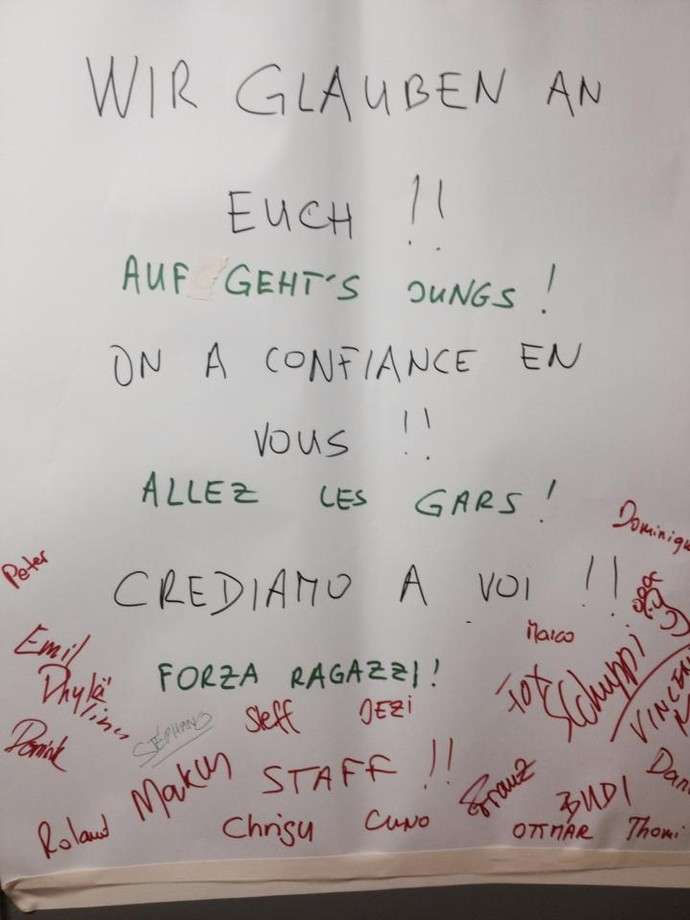 WIR GLAUBEN AN
EUCH !!
AUF GEHT'S JUNGS !
ON A CONFIANCE EN
VOUS !!
ALLEZ LES GARS !
Dominique
Peter
CREDIAMO A VOI !!
Marco
Emil
FORZA RAGAZZI !
Schuppi
Steff
JEZI
STÉPHANO
Dominik
Markus
STAFF !!
Franz
BUDI
Roland
Chrigu
CUNO
OTTMAR
Thomi